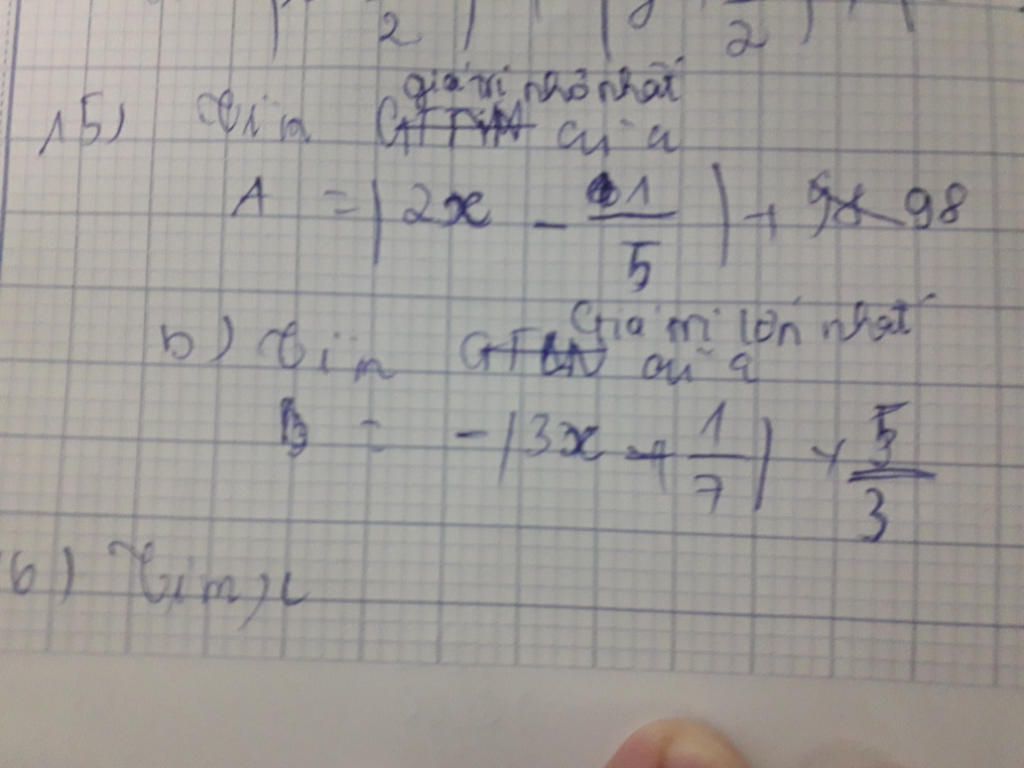 2 2
15) Tìm giá trị nhỏ nhất của
A = |2x - 1/5| + 98
b) Tìm Giá trị lớn nhất của
B = -|3x + 1/7| + 5/3
16) Tìm x